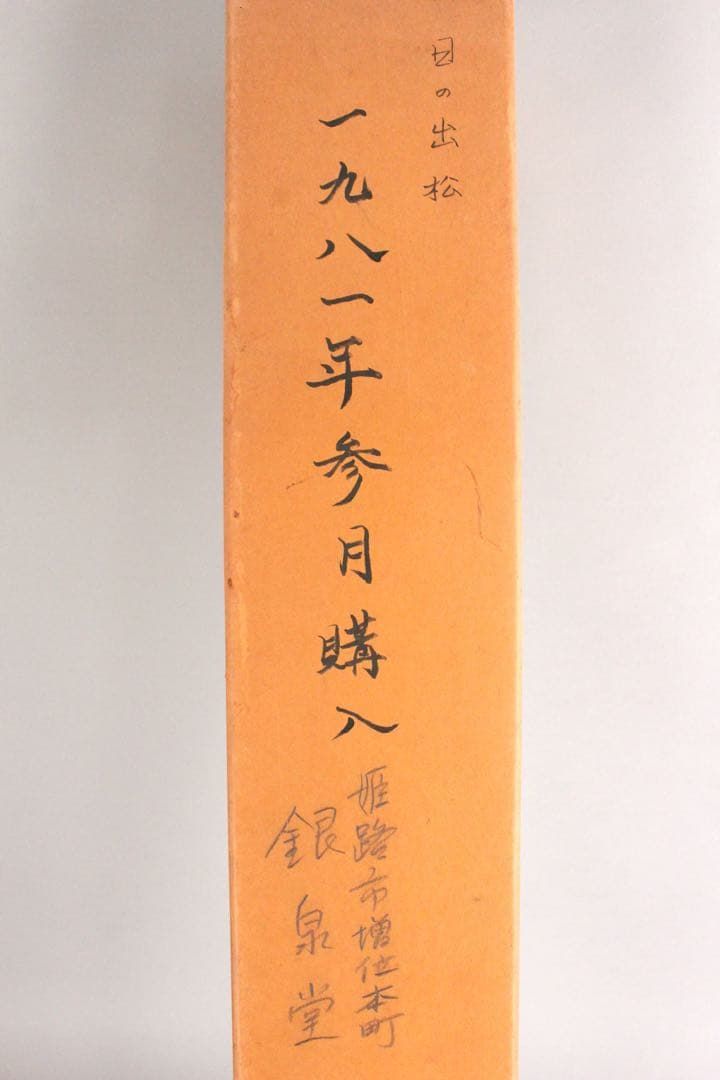 日の出松
一九八一年参月購入
姫路市増位本町
銀泉堂